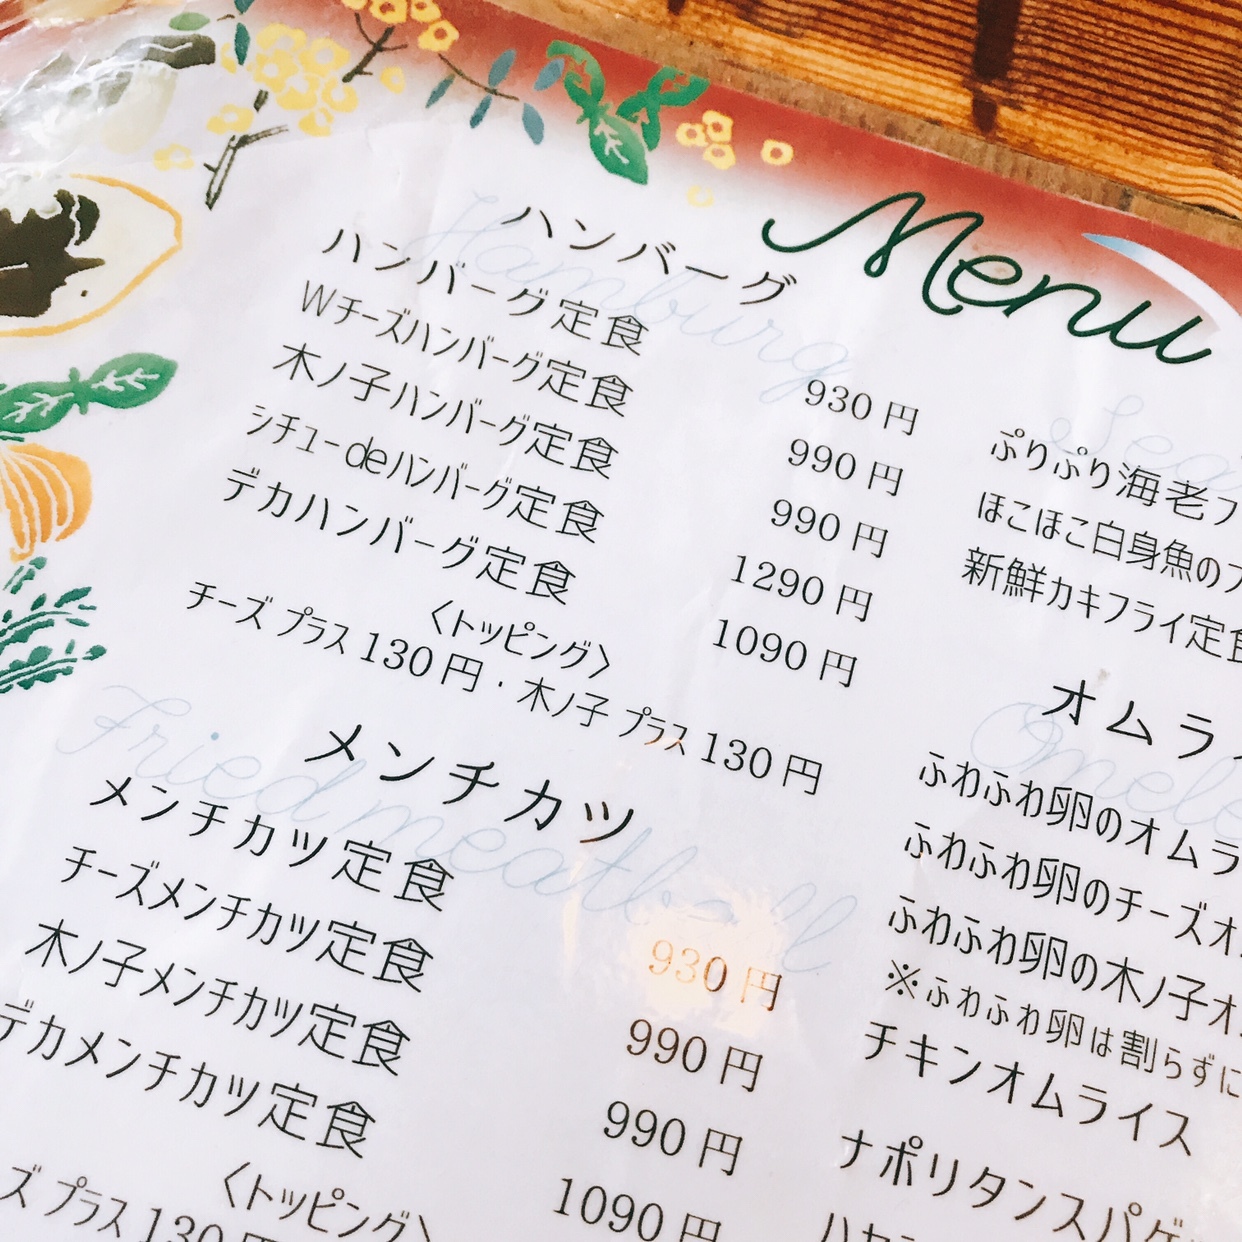 Menu
Hamburg
ハンバーグ
ハンバーグ定食 930円
Wチーズハンバーグ定食 990円
木ノ子ハンバーグ定食 990円
シチューdeハンバーグ定食 1290円
デカハンバーグ定食 1090円
〈トッピング〉
チーズ プラス 130円・木ノ子 プラス 130円
Fried meatball
メンチカツ
メンチカツ定食 930円
チーズメンチカツ定食 990円
木ノ子メンチカツ定食 990円
デカメンチカツ定食 1090円
〈トッピング〉
ズ プラス 130円
Sea
ぷりぷり海老フ
ほこほこ白身魚のフ
新鮮カキフライ定食
Omele
オムライ
ふわふわ卵のオムラ
ふわふわ卵のチーズオ
ふわふわ卵の木ノ子オ
※ふわふわ卵は割らずに
チキンオムライス
ナポリタンスパゲ